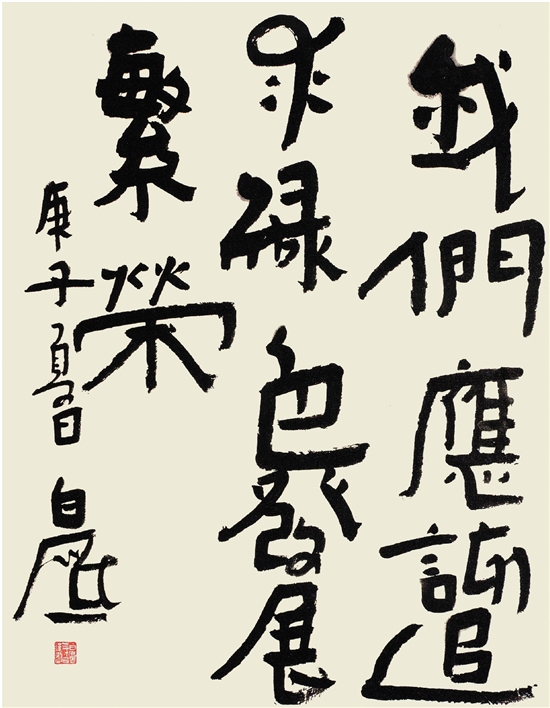 我們應該追
求綠色發展
繁榮
庚子夏日 白砥